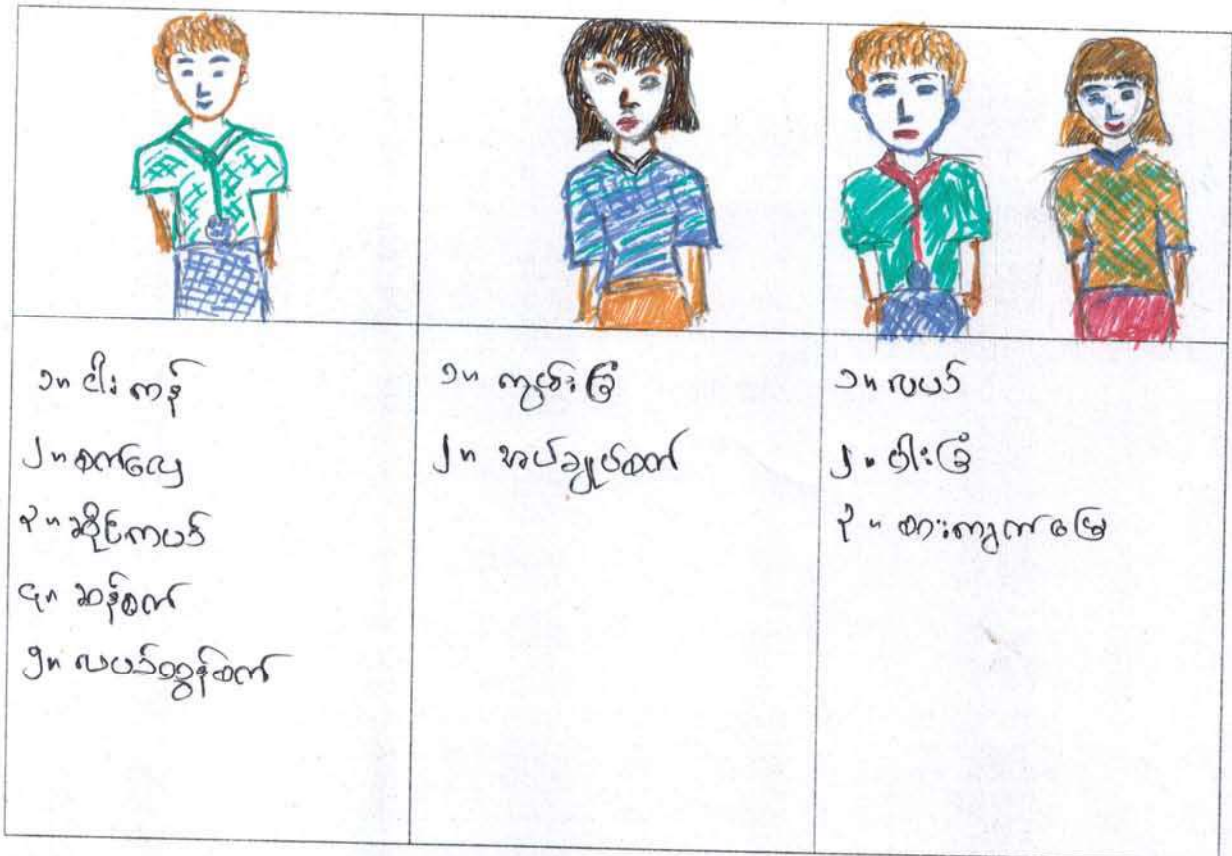 ၁။ ငါးကန်
၂။ စက်လှေ
၃။ ဆိုင်ကယ်
၄။ ဆန်စက်
၅။ လယ်ထွန်စက်
၁။ ကွမ်းခြံ
၂။ အပ်ချုပ်စက်
၁။ လယ်
၂။ ဝါးခြံ
၃။ စားကျက်မြေ